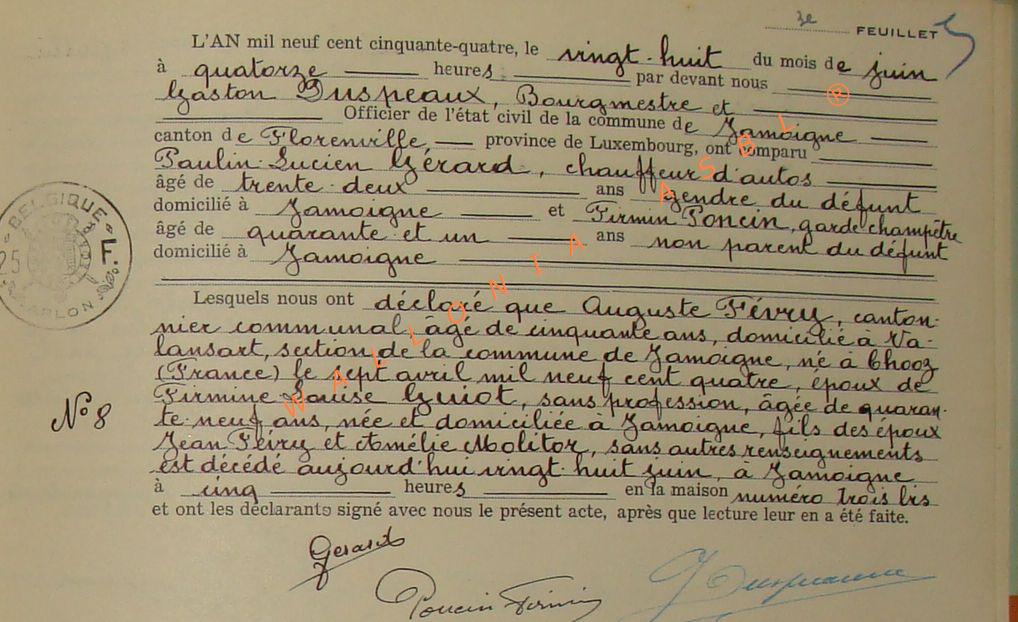 3e FEUILLET
L'AN mil neuf cent cinquante-quatre, le vingt-huit du mois de juin
à quatorze heures par devant nous
Gaston Duspeaux, Bourgmestre et
Officier de l'état civil de la commune de Jamoigne
canton de Florenville, province de Luxembourg, ont comparu
Paulin-Lucien Gérard, chauffeur d'autos
âgé de trente-deux ans gendre du défunt
domicilié à Jamoigne et Firmin Poncin, garde champêtre
âgé de quarante et un ans non parent du défunt
domicilié à Jamoigne
Lesquels nous ont déclaré que Auguste Févry, canton-
nier communal, âgé de cinquante ans, domicilié à Va-
lansart, section de la commune de Jamoigne, né à Chooz
(France) le sept avril mil neuf cent quatre, époux de
Firmine Louise Guiot, sans profession, âgée de quaran-
te-neuf ans, née et domiciliée à Jamoigne, fils des époux
Jean Févry et Amélie Molitor, sans autres renseignements
est décédé aujourd'hui vingt-huit juin, à Jamoigne
à cinq heures en la maison numéro trois bis
et ont les déclarants signé avec nous le présent acte, après que lecture leur en a été faite.
N° 8
BELGIQUE
25 F.
ARLON
WALLONIA ASBL ®
Gerard
Poncin Firmin